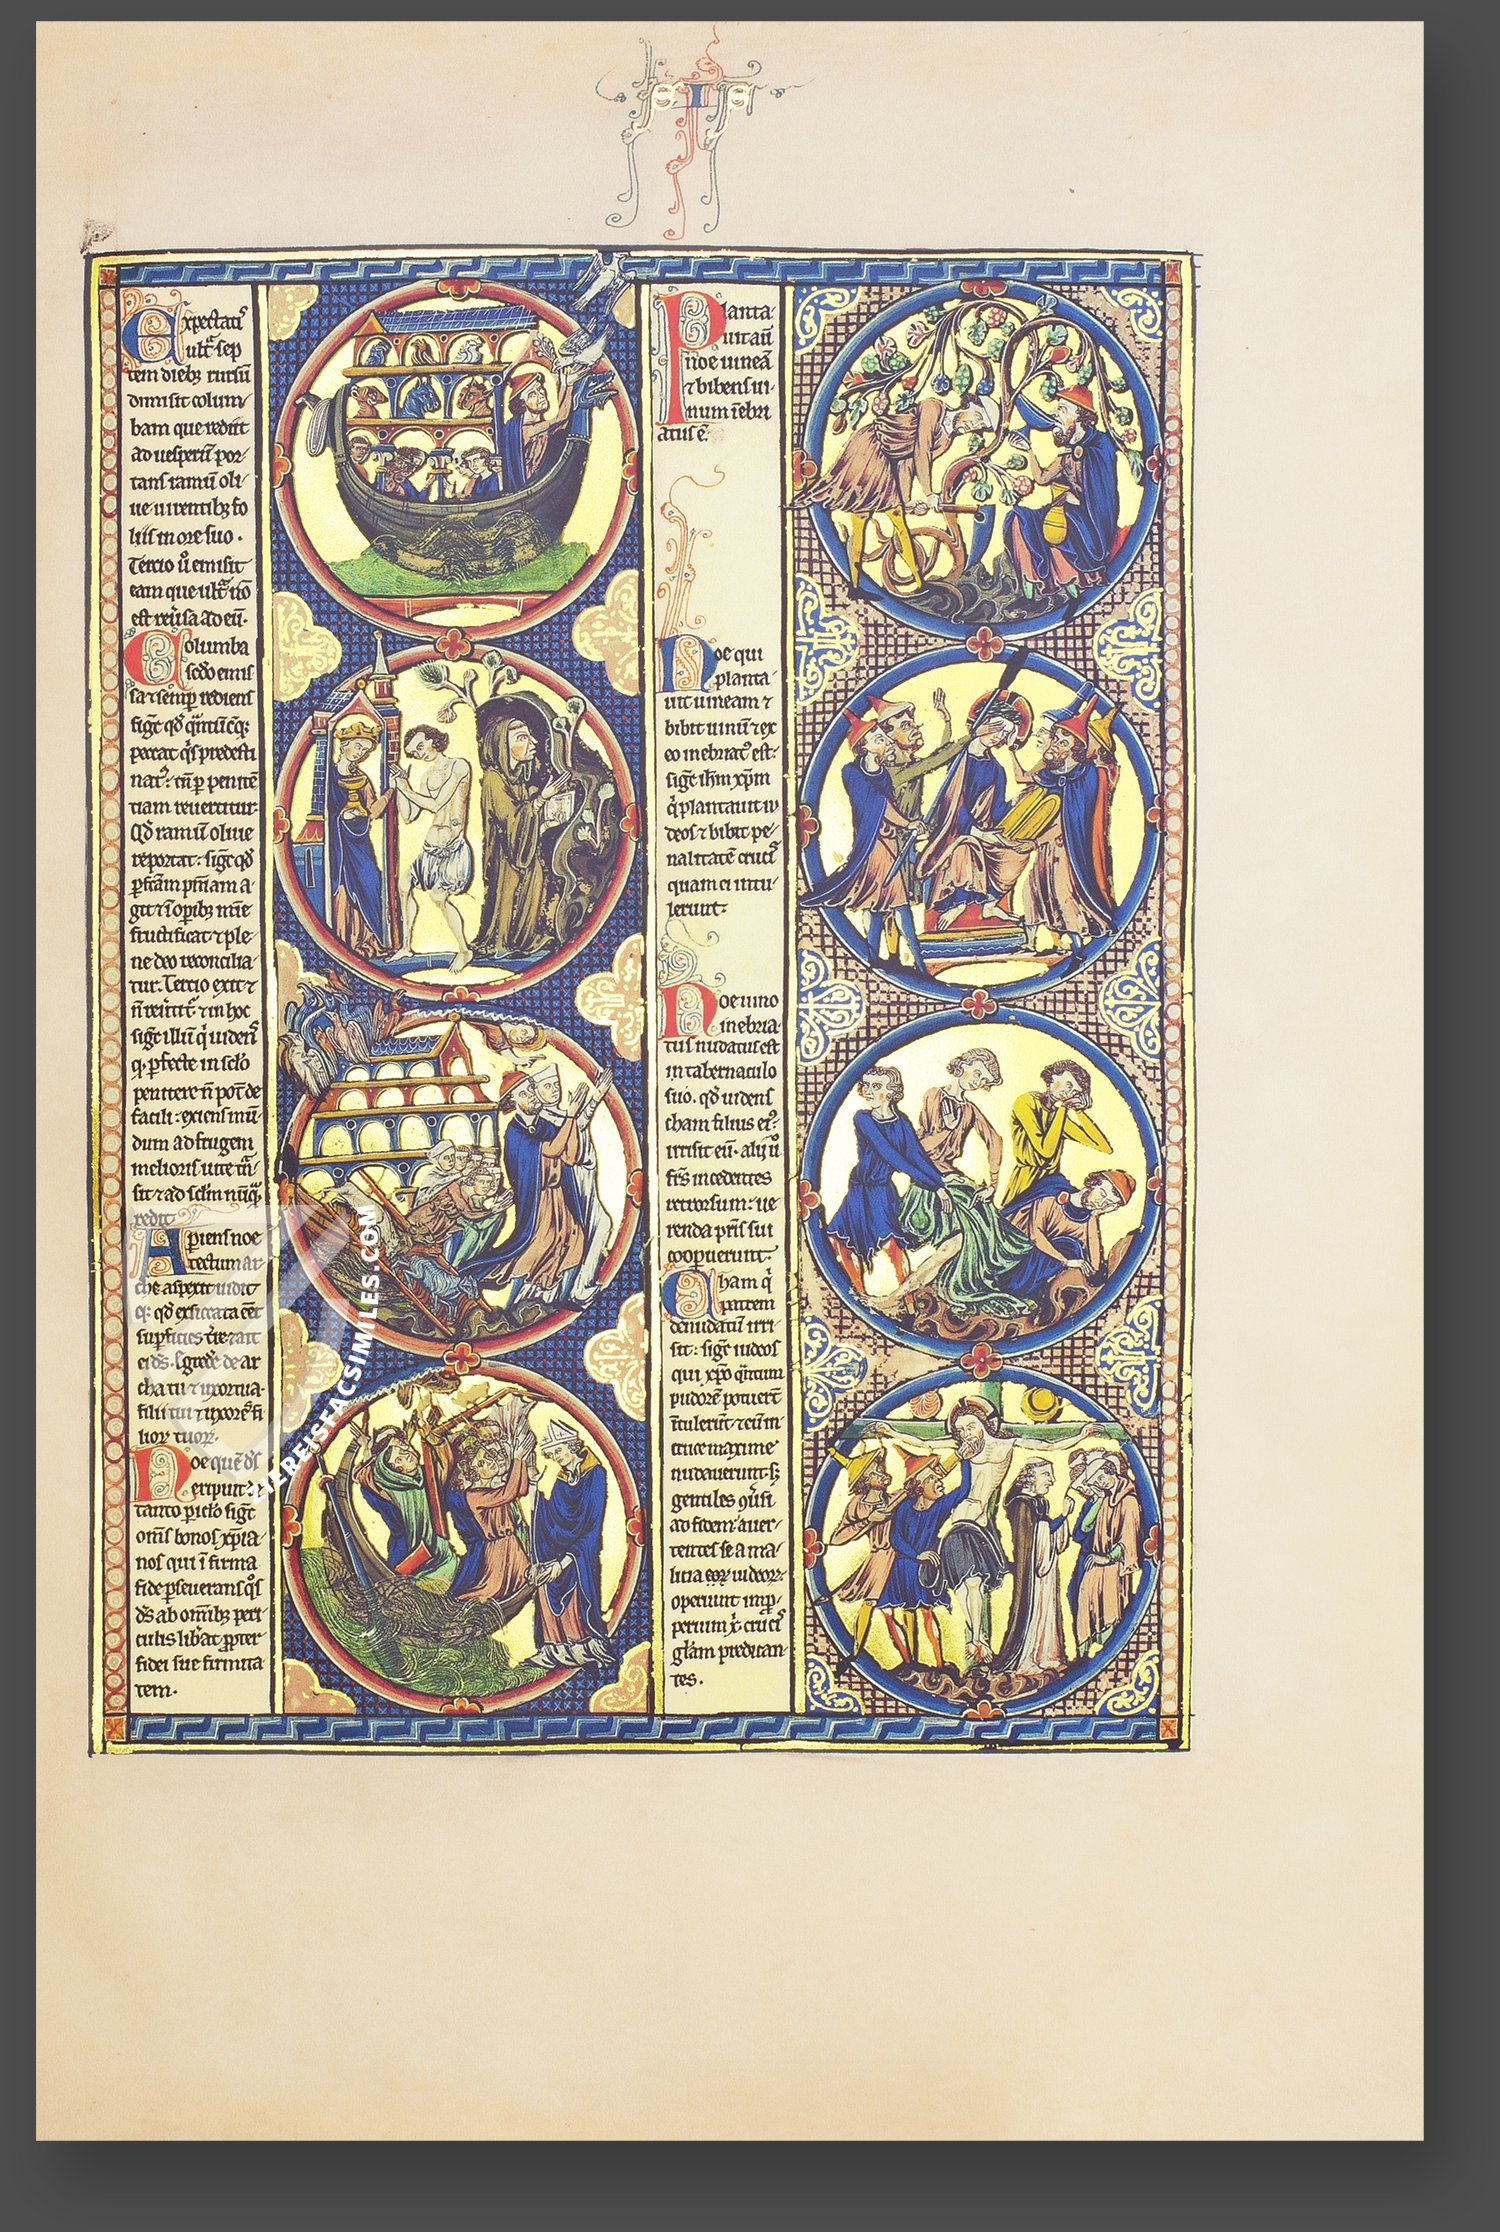 Expectatis
ultͥ sep
tem diebꝫ rursū
dimisit colum
bam que rediit
ad uesperū por
tans ramū oli
ue uirentibꝫ fo
liis in ore suo.
Tercio ů emisit
eam que ultͣ nō
est reůsa ad eū.
Columba
scd̓o emis
sa ⁊ semꝑ rediens
sigͭ qd̓
peccat
natꝰ: ꝑ peniten
tiam reuertitur.
Qd̓ ramū oliue
reportat: sigͭ qd̓
ꝑfc̄am pn̄iam a
git ⁊ ī oꝑibꝫ mīe
fructificat ⁊ ple
ne deo reconcilia
tur. Tercio exit ⁊
⁊ in hoc
sigͭ illū
ꝙ ꝑfecte in sclo
penitere n̄ potͭ de
facili: exiens mū
dum ad frugem
melioris uite
sit ⁊ ad sclm nūqͣ
redit
Apiens noe
tectum ar
che aspexit uidit
qꝫ qd̓ exsiccata eēt
suꝑficies tͬre ⁊ ait
ei ds̄. Egͬdeͬ de ar
cha tu ⁊ uxor tua.
filii tui ⁊ uxores fi
lioꝝ tuoꝝ.
Noe quē ds̄
eripuit a
tanto ꝑiclo sigͭ
om̄s bonos xp̄ia
nos qui ī firma
fide ꝑseuerant qͦs
ds̄ ab om̄ibꝫ peri
culis libͣat ꝓpter
fidei sue firmita
tem.
Planta
uit aū
noe uineā
⁊ bibens ui
num īebri
atus ē.
Noe qui
planta
uit uineam ⁊
bibit uinū ⁊ ex
eo inebriatꝰ est.
sigͭ ihm xp̄m
qͥ plantauit iu
deos ⁊ bibit pe
nalitatē crucis
quam ei intu
lerunt.
Noe uino
inebria
tus nudatus est
in tabernaculo
suo. qd̓ uidens
cham filius eiꝰ
irrisit eū. alii ů
frēs incedentes
retrorsum: ue
renda pr̄is sui
cooꝑuerunt.
Cham qͥ
patrem
denudatū irri
sit: sigͭ iudeos
qui xp̄o qͣntum
pudorē potuerūt
ītulerūt ⁊ eū in
cruce maxime
nudauerunt. sꝫ
gentiles ꝯuͥsi
ad fidem auer
tentes se a ma
litia eoꝝ iudeoꝝ
operiunt impꝓ
perium xͥ crucis
gl̄iam predican
tes.
ZIEREISFACSIMILES.COM